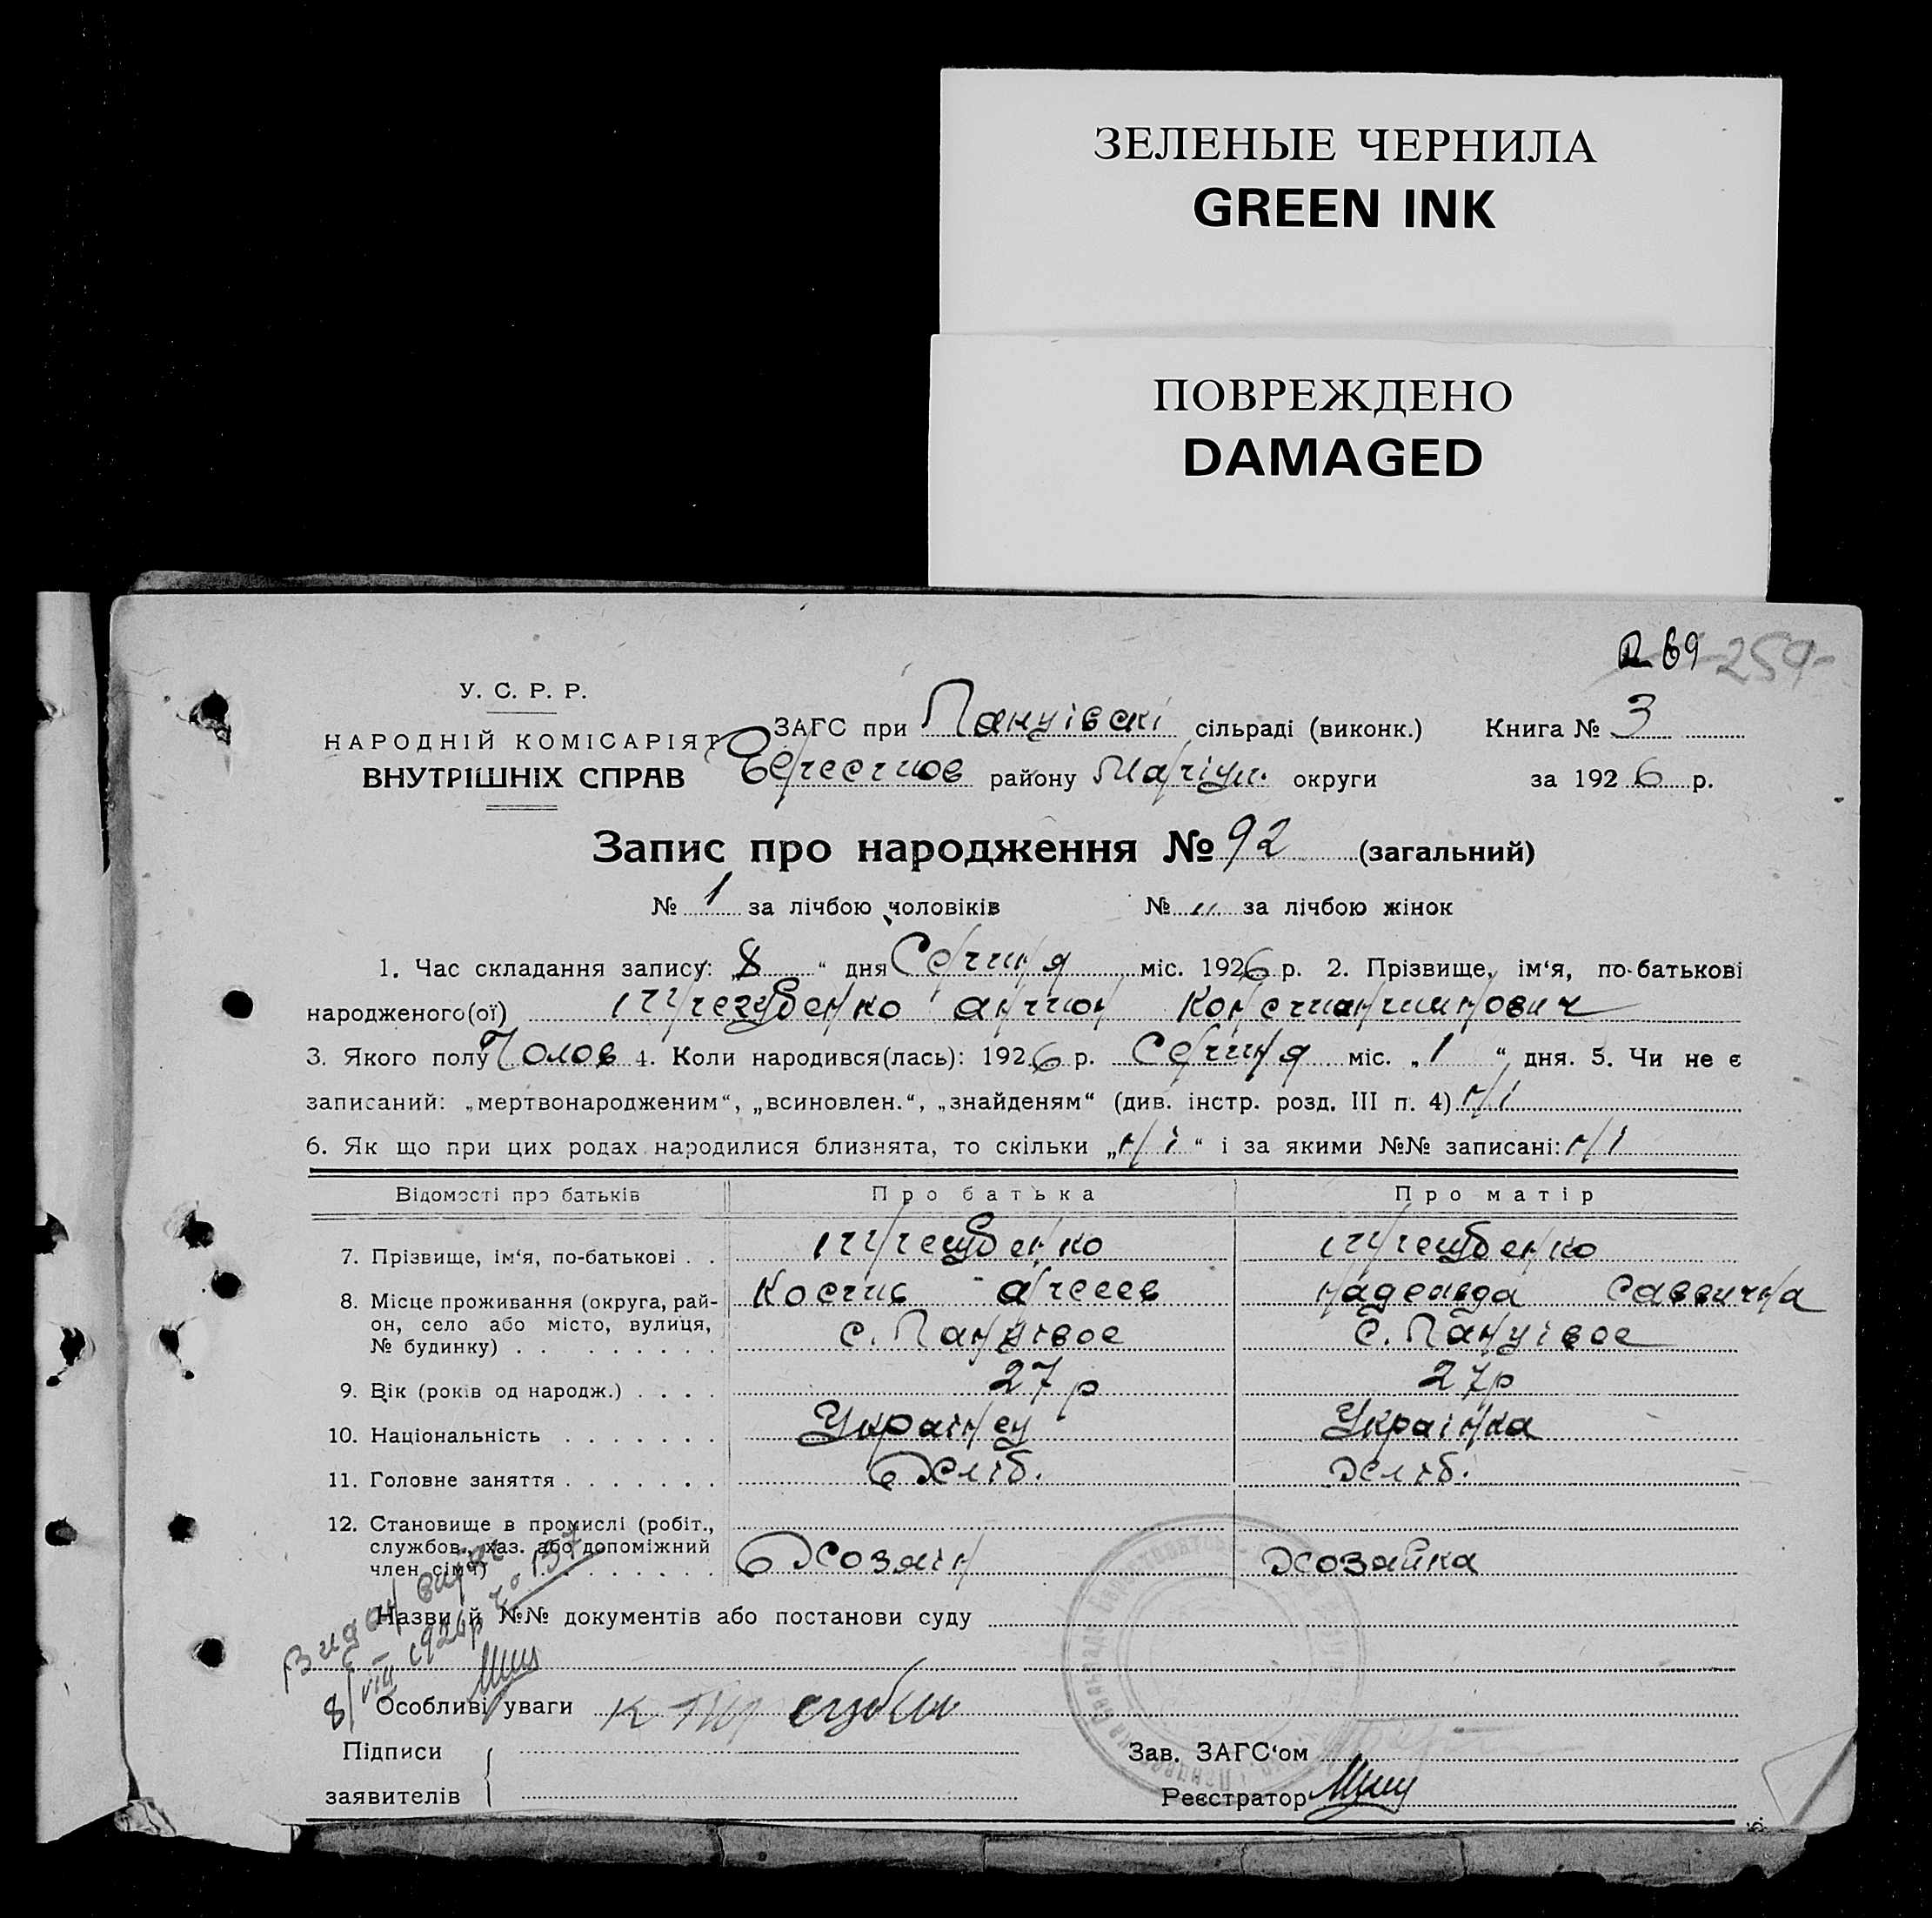 ЗЕЛЕНЫЕ ЧЕРНИЛА
GREEN INK
ПОВРЕЖДЕНО
DAMAGED
69 259
У. С. Р. Р.
НАРОДНІЙ КОМІСАРІЯТ
ВНУТРІШНІХ СПРАВ
ЗАГС при сільраді (виконк.) Книга № 3
району Маріуп. округи за 1926 р.
Запис про народження № 92 (загальний)
№ 1 за лічбою чоловіків № " за лічбою жінок
1. Час складання запису: „8“ дня Січня міс. 1926 р. 2. Прізвище, ім‘я, по-батькові
народженого(ої) Антон Константинович
3. Якого полу Чолов 4. Коли народився(лась): 1926 р. Січня міс. „1“ дня. 5. Чи не є
записаний: „мертвонародженим“, „всиновлен.“, „знайденям“ (див. інстр. розд. III п. 4) ні
6. Як що при цих родах народилися близнята, то скільки „ні“ і за якими №№ записані: ні
Відомості про батьків Про батька Про матір
7. Прізвище, ім‘я, по-батькові . .
8. Місце проживання (округа, рай- Надежда Саввична
он, село або місто, вулиця, с. с.
№ будинку)
9. Вік (років од народж.) . . . . 27 р 27 р
10. Національність . . . . . . . Українец Українка
11. Головне заняття . . . . . . . Хліб. Хліб.
12. Становище в промислі (робіт.,
службов., хаз. або допоміжний
член сім‘ї) Хозяін Хозайка
Назви й №№ документів або постанови суду
Видан витяг
8/VIII 1926р № 137
Особливі уваги
Підписи
заявителів
Зав. ЗАГС‘ом
Реєстратор